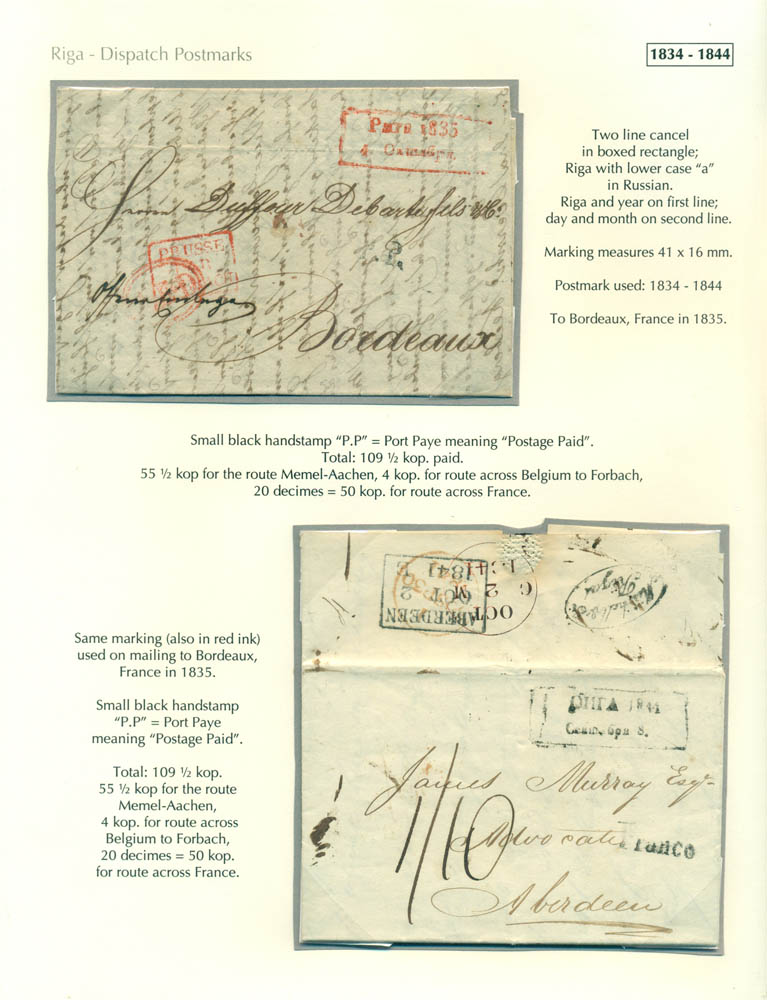 Riga - Dispatch Postmarks
1834 - 1844
Рига 1835
4. Октября.
Two line cancel
in boxed rectangle;
Riga with lower case “a”
in Russian.
Riga and year on first line;
day and month on second line.
Marking measures 41 x 16 mm.
Postmark used: 1834 - 1844
To Bordeaux, France in 1835.
PRUSSE
Bordeaux
Small black handstamp “P.P” = Port Paye meaning “Postage Paid”.
Total: 109 ½ kop. paid.
55 ½ kop for the route Memel-Aachen, 4 kop. for route across Belgium to Forbach,
20 decimes = 50 kop. for route across France.
ABERDEEN
OCT 2
1841
OCT
2
Same marking (also in red ink)
used on mailing to Bordeaux,
France in 1835.
Small black handstamp
“P.P” = Port Paye
meaning “Postage Paid”.
Total: 109 ½ kop.
55 ½ kop for the route
Memel-Aachen,
4 kop. for route across
Belgium to Forbach,
20 decimes = 50 kop.
for route across France.
РИГА 1844
Сентября 8.
James Murray Esqr
1/10
Advocate
Franco
Aberdeen